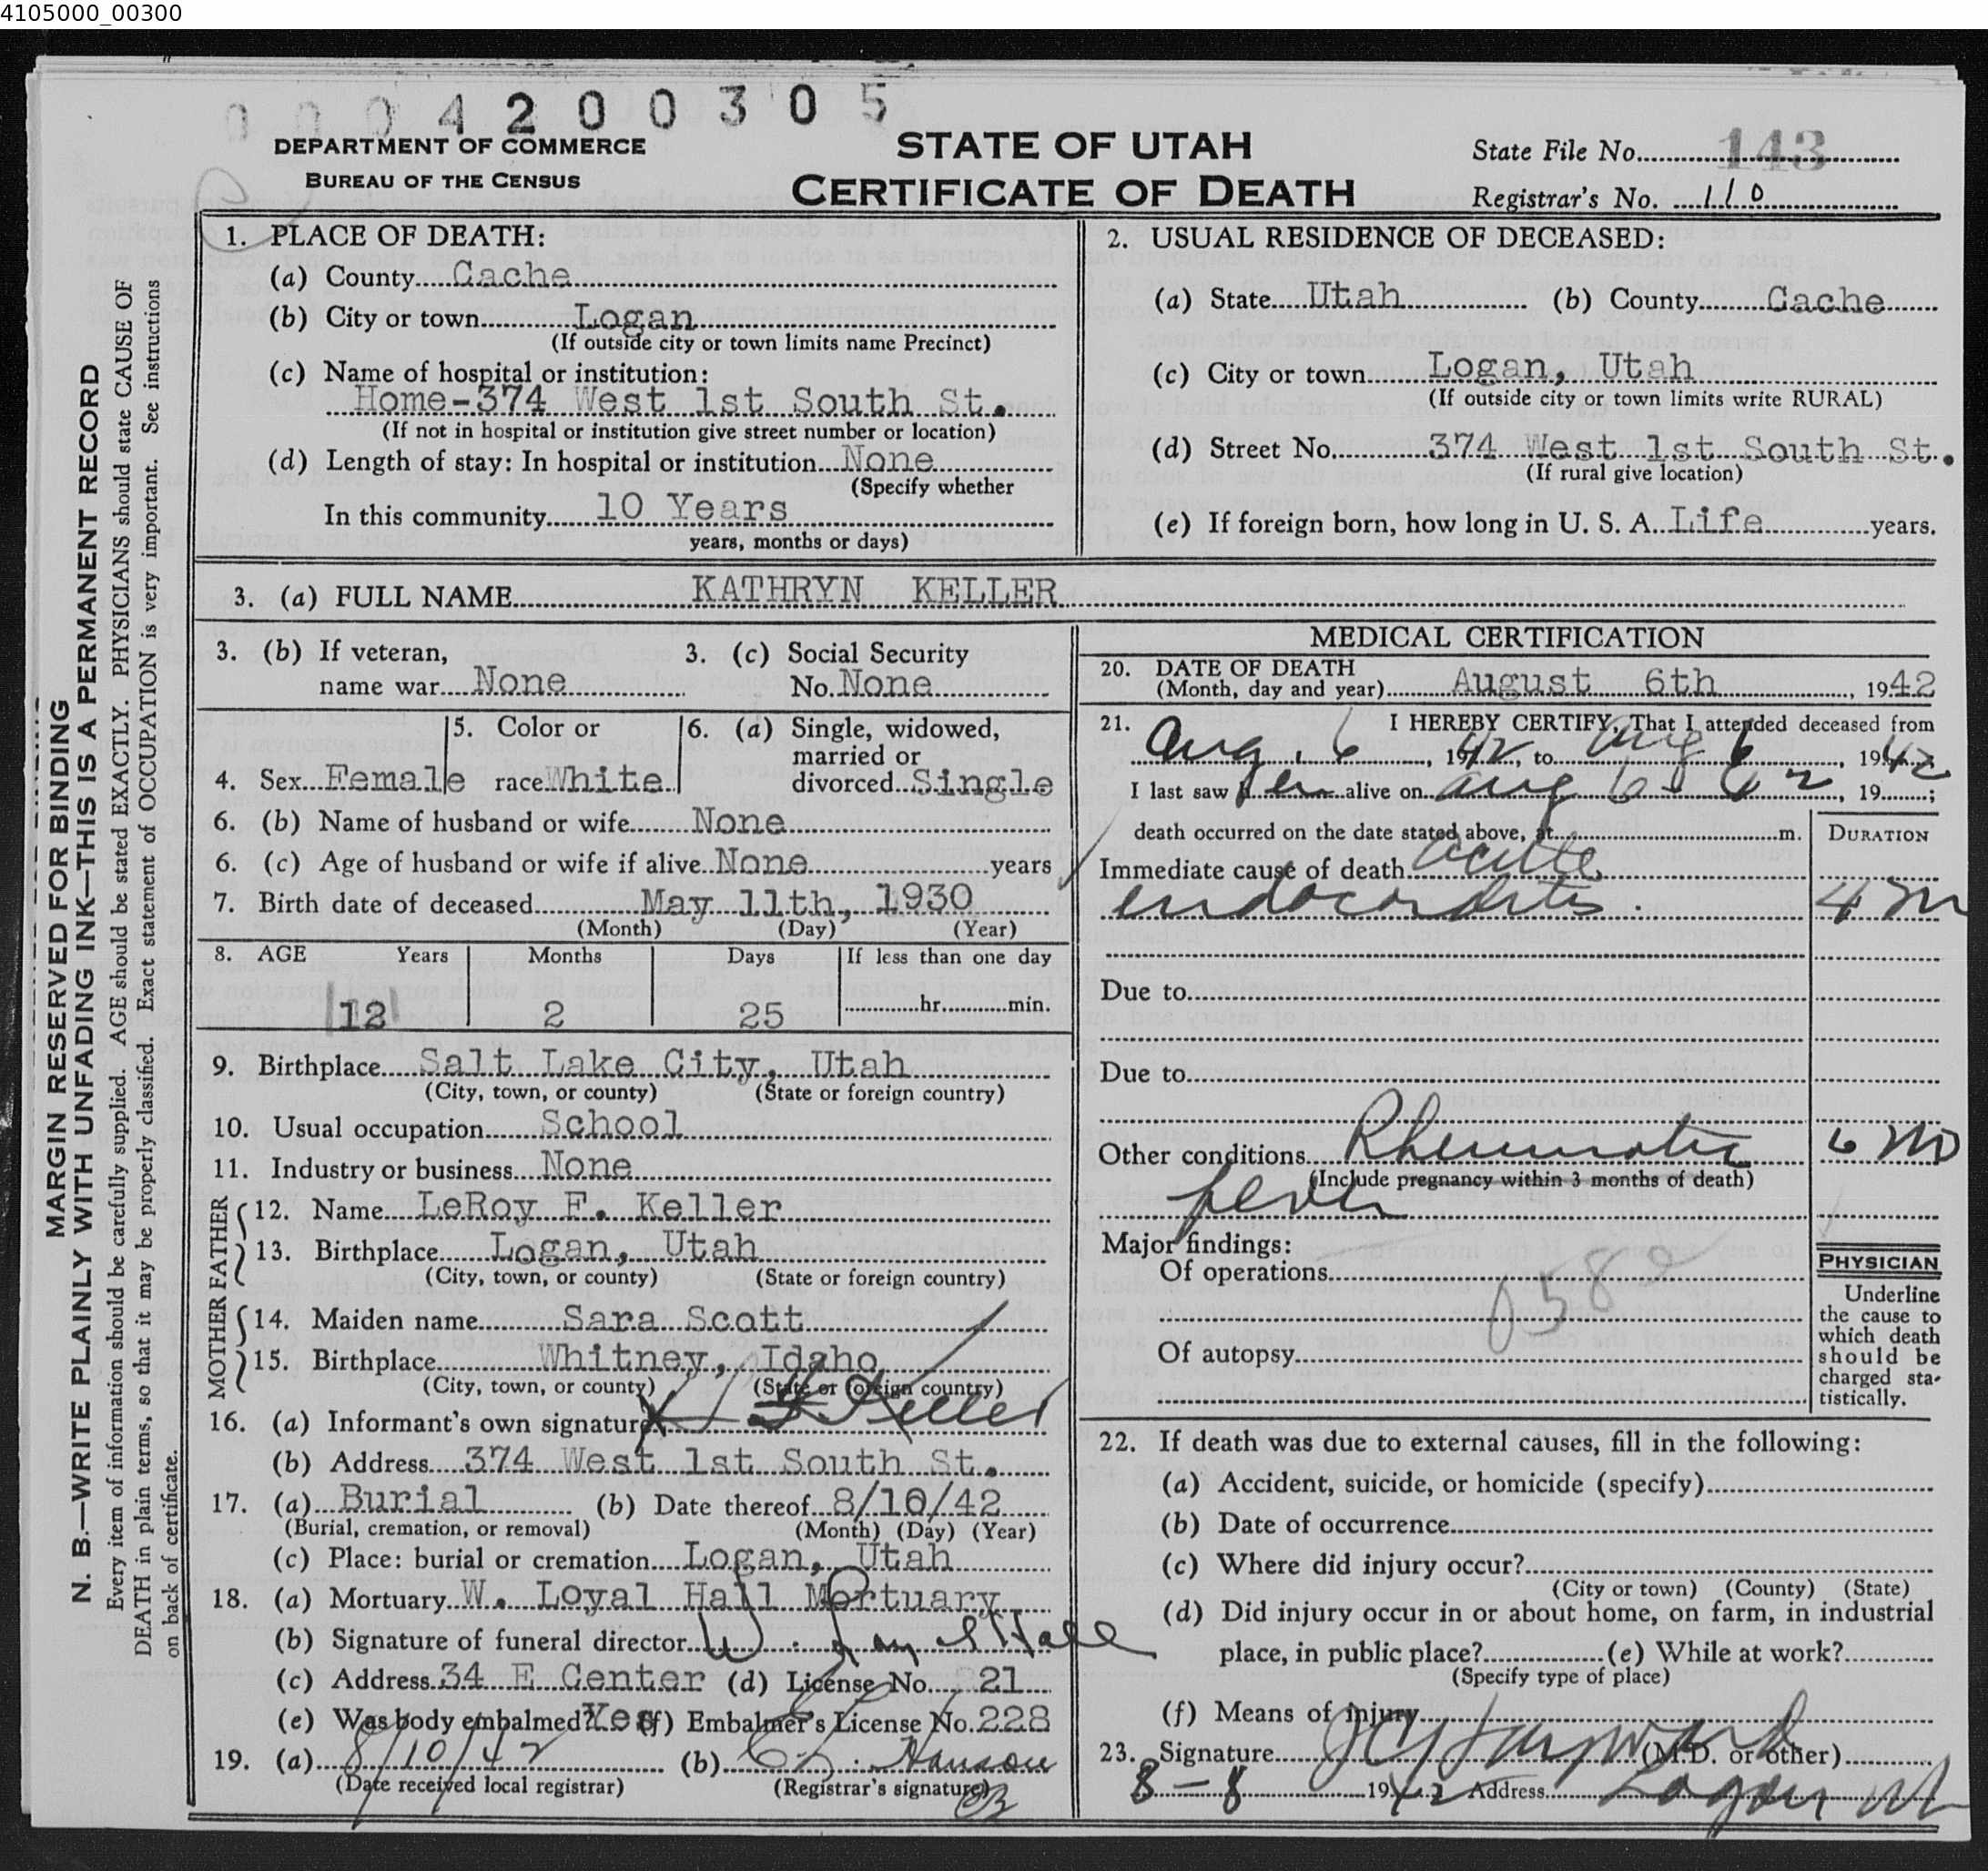 4105000_00300
0004200305
DEPARTMENT OF COMMERCE
BUREAU OF THE CENSUS
STATE OF UTAH
CERTIFICATE OF DEATH
State File No. 143
Registrar's No. 110
MARGIN RESERVED FOR BINDING
N. B.—WRITE PLAINLY WITH UNFADING INK—THIS IS A PERMANENT RECORD
Every item of information should be carefully supplied. AGE should be stated EXACTLY. PHYSICIANS should state CAUSE OF
DEATH in plain terms, so that it may be properly classified. Exact statement of OCCUPATION is very important. See instructions
on back of certificate.
1. PLACE OF DEATH:
(a) County Cache
(b) City or town Logan
(If outside city or town limits name Precinct)
(c) Name of hospital or institution:
Home-374 West 1st South St.
(If not in hospital or institution give street number or location)
(d) Length of stay: In hospital or institution None
(Specify whether
In this community 10 Years
years, months or days)
2. USUAL RESIDENCE OF DECEASED:
(a) State Utah (b) County Cache
(c) City or town Logan, Utah
(If outside city or town limits write RURAL)
(d) Street No. 374 West 1st South St.
(If rural give location)
(e) If foreign born, how long in U. S. A. Life years.
3. (a) FULL NAME KATHRYN KELLER
3. (b) If veteran,
name war None
3. (c) Social Security
No. None
4. Sex Female
5. Color or
race White
6. (a) Single, widowed,
married or
divorced Single
6. (b) Name of husband or wife None
6. (c) Age of husband or wife if alive None years
7. Birth date of deceased May 11th, 1930
(Month) (Day) (Year)
8. AGE Years Months Days If less than one day
12 2 25 hr. min.
9. Birthplace Salt Lake City, Utah
(City, town, or county) (State or foreign country)
10. Usual occupation School
11. Industry or business None
FATHER
12. Name LeRoy F. Keller
13. Birthplace Logan, Utah
(City, town, or county) (State or foreign country)
MOTHER
14. Maiden name Sara Scott
15. Birthplace Whitney, Idaho
(City, town, or county) (State or foreign country)
16. (a) Informant's own signature Keller
(b) Address 374 West 1st South St.
17. (a) Burial (b) Date thereof 8/10/42
(Burial, cremation, or removal) (Month) (Day) (Year)
(c) Place: burial or cremation Logan, Utah
18. (a) Mortuary W. Loyal Hall Mortuary
(b) Signature of funeral director W. Loyal Hall
(c) Address 34 E Center (d) License No. 21
(e) Was body embalmed? Yes (f) Embalmer's License No. 228
19. (a) 8/10/42 (b) Hanson
(Date received local registrar) (Registrar's signature)
MEDICAL CERTIFICATION
20. DATE OF DEATH
(Month, day and year) August 6th, 1942
21. I HEREBY CERTIFY, That I attended deceased from
Aug. 6, 1942, to Aug 6, 1942
I last saw her alive on Aug 6 42, 19 ;
death occurred on the date stated above, at m.
DURATION
Immediate cause of death acute
endocarditis 4 m
Due to
Due to
Other conditions Rheumatic 6 mo
(Include pregnancy within 3 months of death)
fever
Major findings:
Of operations
058
Of autopsy
PHYSICIAN
Underline
the cause to
which death
should be
charged sta-
tistically.
22. If death was due to external causes, fill in the following:
(a) Accident, suicide, or homicide (specify)
(b) Date of occurrence
(c) Where did injury occur?
(City or town) (County) (State)
(d) Did injury occur in or about home, on farm, in industrial
place, in public place? (e) While at work?
(Specify type of place)
(f) Means of injury
23. Signature J C Hayward (M.D. or other)
8-8 1942 Address Logan Ut